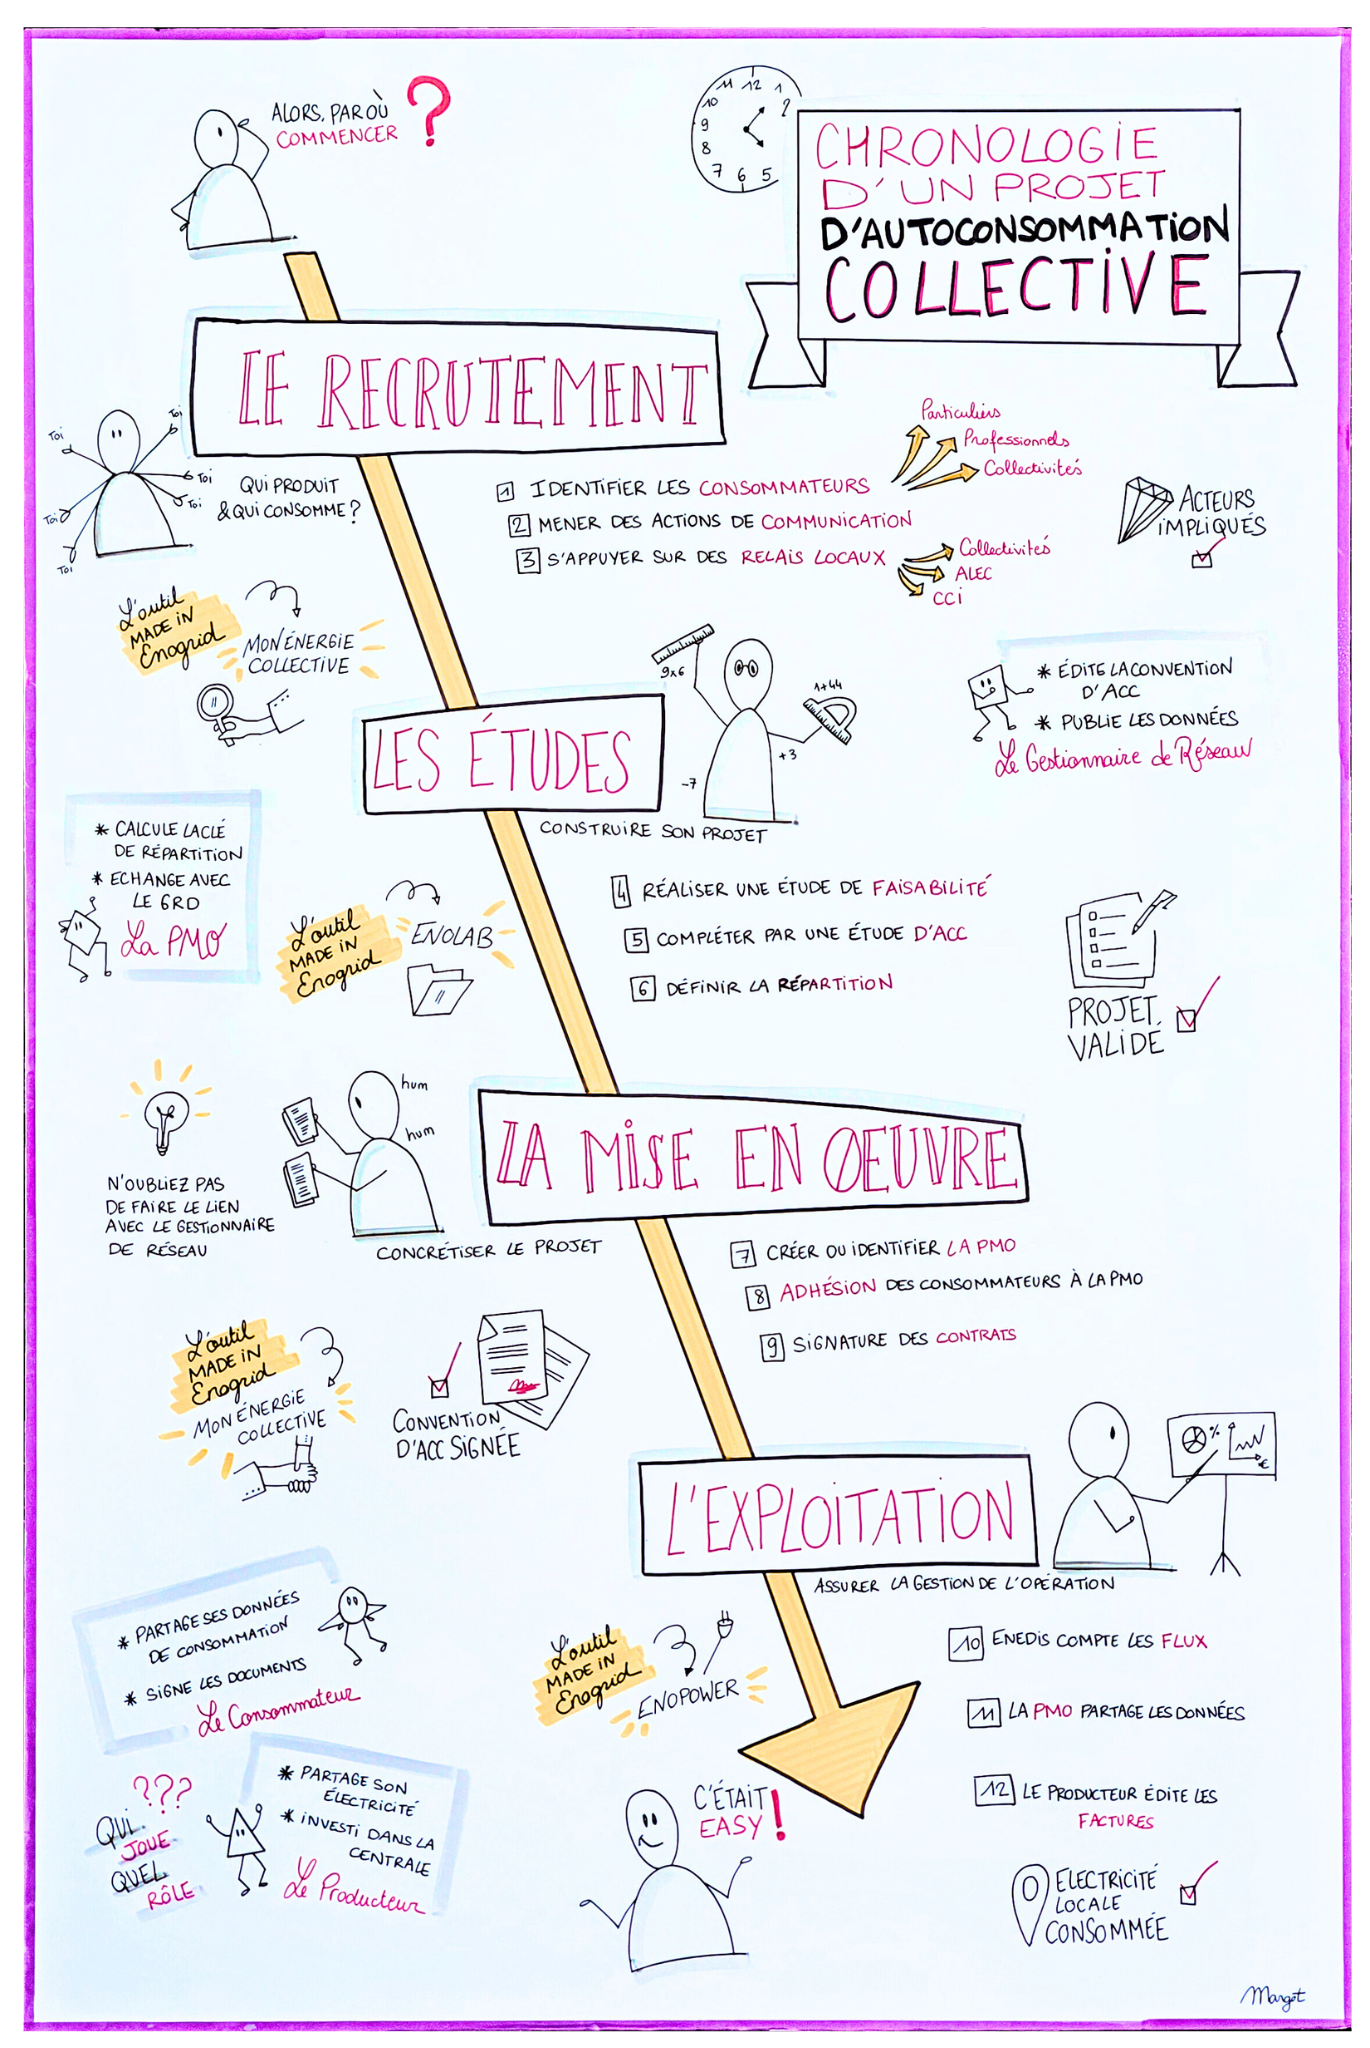 ALORS, PAR OÙ
COMMENCER ?
11 12 1
10 2
9
8
7 6 5
CHRONOLOGIE
D'UN PROJET
D'AUTOCONSOMMATION
COLLECTIVE
LE RECRUTEMENT
Toi
Toi
Toi
Toi
Toi
Toi
QUI PRODUIT
& QUI CONSOMME ?
1 IDENTIFIER LES CONSOMMATEURS
Particuliers
Professionnels
Collectivités
2 MENER DES ACTIONS DE COMMUNICATION
3 S'APPUYER SUR DES RELAIS LOCAUX
Collectivités
ALEC
CCI
ACTEURS
IMPLIQUÉS
L'outil
MADE IN
Enogrid
MON ÉNERGIE
COLLECTIVE
LES ÉTUDES
9x6
1+44
+3
-7
CONSTRUIRE SON PROJET
* ÉDITE LA CONVENTION
D'ACC
* PUBLIE LES DONNÉES
Le Gestionnaire de Réseau
* CALCULE LA CLÉ
DE RÉPARTITION
* ECHANGE AVEC
LE GRD
La PMO
L'outil
MADE IN
Enogrid
ENOLAB
4 RÉALISER UNE ÉTUDE DE FAISABILITÉ
5 COMPLÉTER PAR UNE ÉTUDE D'ACC
6 DÉFINIR LA RÉPARTITION
PROJET
VALIDÉ
N'OUBLIEZ PAS
DE FAIRE LE LIEN
AVEC LE GESTIONNAIRE
DE RÉSEAU
hum
hum
LA MISE EN OEUVRE
CONCRÉTISER LE PROJET
7 CRÉER OU IDENTIFIER LA PMO
8 ADHÉSION DES CONSOMMATEURS À LA PMO
9 SIGNATURE DES CONTRATS
L'outil
MADE IN
Enogrid
MON ÉNERGIE
COLLECTIVE
CONVENTION
D'ACC SIGNÉE
L'EXPLOITATION
%
€
ASSURER LA GESTION DE L'OPÉRATION
10 ENEDIS COMPTE LES FLUX
11 LA PMO PARTAGE LES DONNÉES
12 LE PRODUCTEUR ÉDITE LES
FACTURES
ELECTRICITÉ
LOCALE
CONSOMMÉE
* PARTAGE SES DONNÉES
DE CONSOMMATION
* SIGNE LES DOCUMENTS
Le Consommateur
L'outil
MADE IN
Enogrid
ENOPOWER
???
QUI
JOUE
QUEL
RÔLE
* PARTAGE SON
ÉLECTRICITÉ
* INVESTI DANS LA
CENTRALE
Le Producteur
C'ÉTAIT
EASY !
Margot